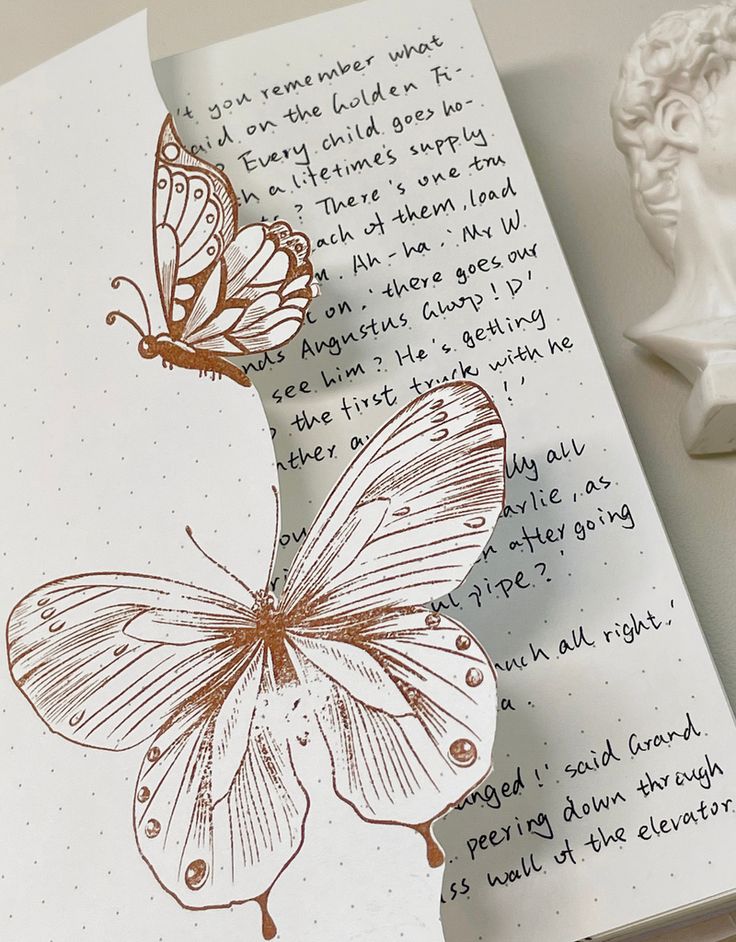 't you remember what
aid on the Golden Ti-
Every child goes ho-
h a lifetime's supply
? There's one tru
ach of them, load
n. Ah-ha.' Mr W
t on. 'there goes our
nds Augustus Gloop! D'
see him? He's getling
the first truck with he
ther a
!'
lly all
ou arlie, as
after going
ul pipe?'
much all right.'
a.
anged!' said Grand
.. peering down through
ss wall of the elevator